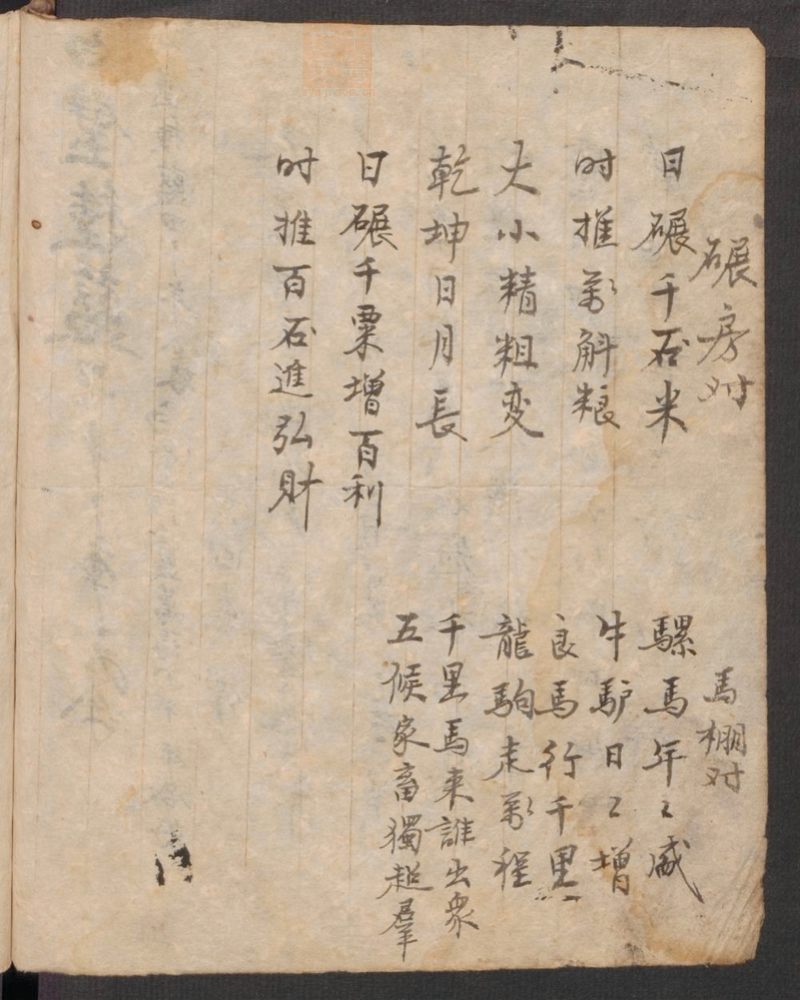 碾房对
日碾千石米
时推万斛粮
大小精粗变
乾坤日月長
日碾千粟增百利
时推百石進弘財
馬棚对
騾馬年〻盛
牛馿日〻增
良馬行千里
龍駒走万程
千里馬来誰出衆
五候家畜獨超羣